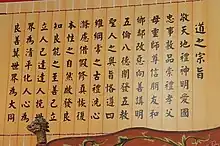 道之宗旨
敬天地禮神明愛國
忠事敦品崇禮孝父
母重師尊信朋友和
鄉鄰改惡向善講明
五倫八德闡發五教
聖人之奧旨恪遵四
維綱常之古禮洗心
滌慮借假修真恢復
本性之自然啟發良
知良能之至善己立
立人己達達人挽世
界為清平化人心為
良善冀世界為大同